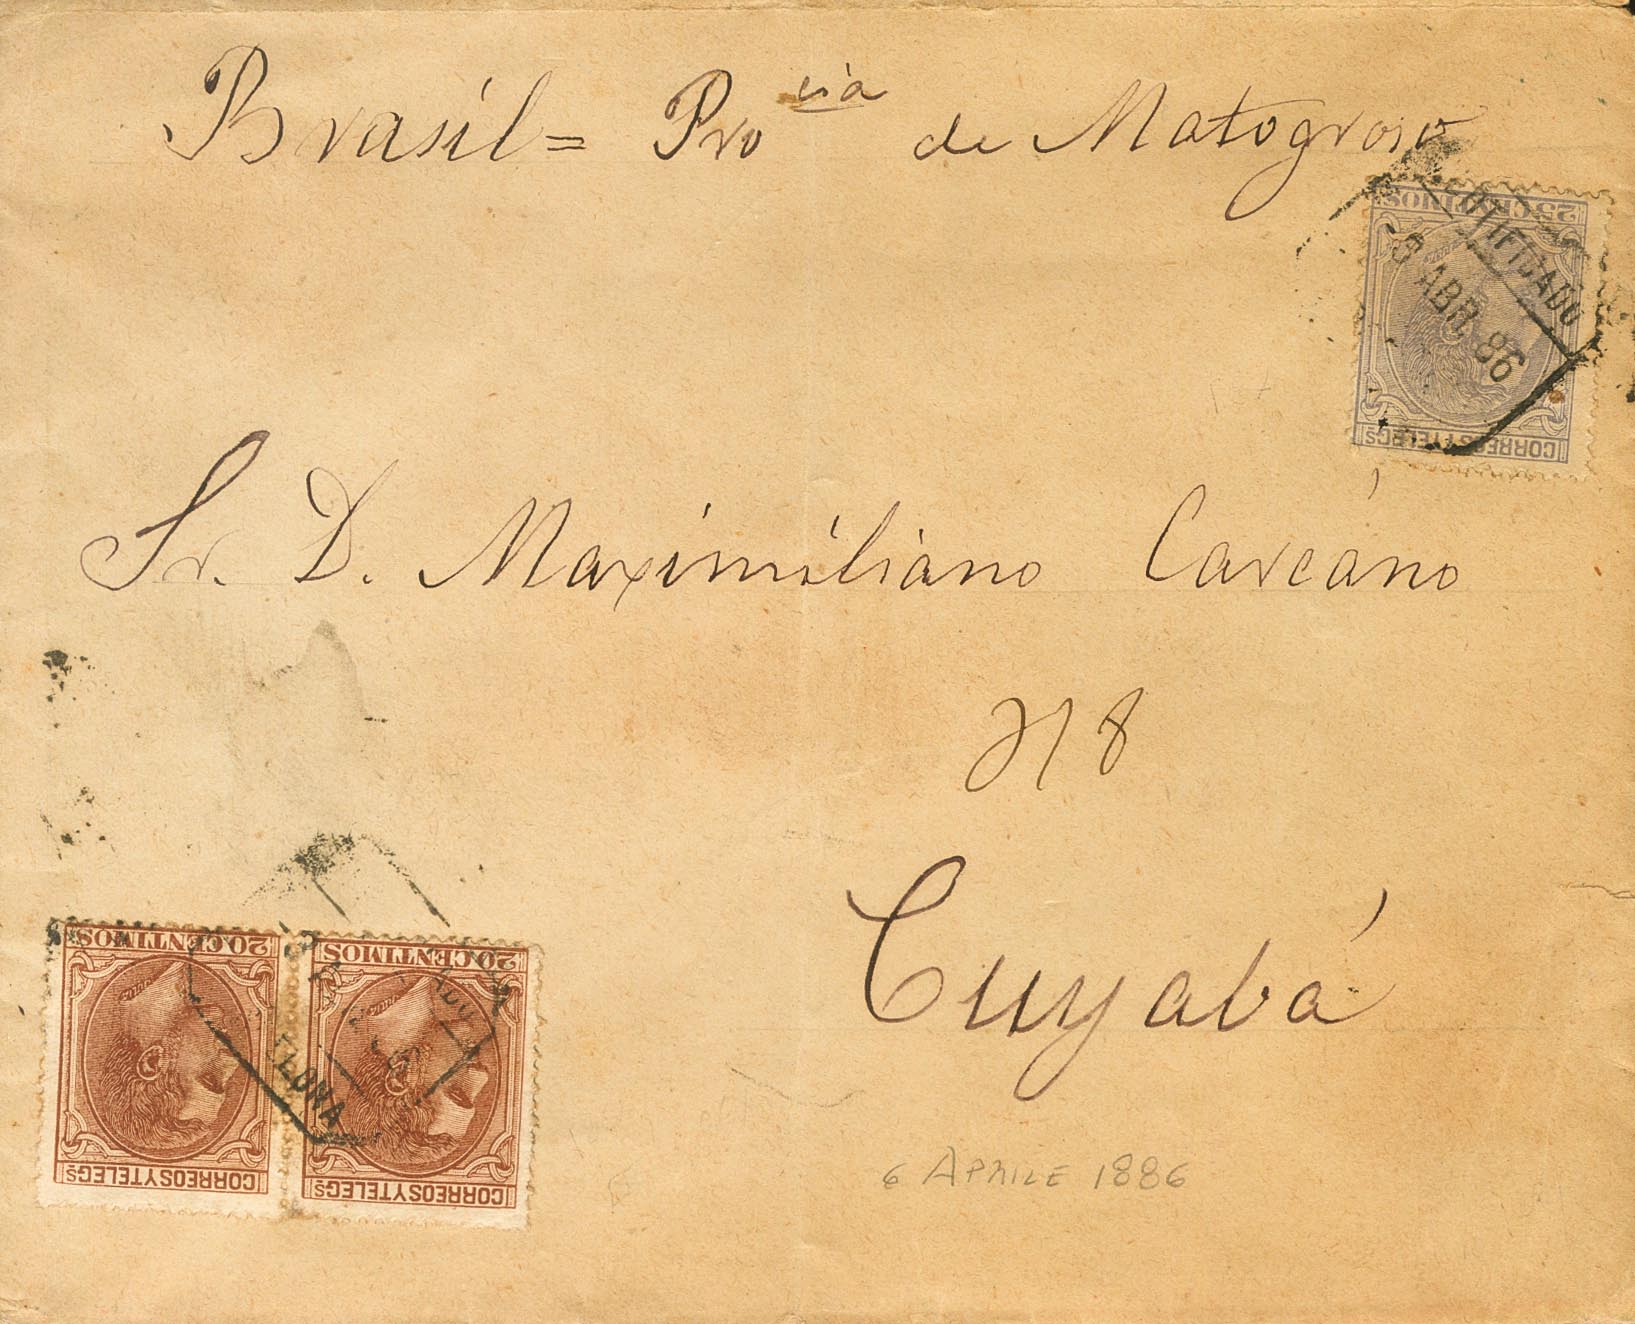 Brasil = Pro cia de Matogroso
25 CENTIMOS
CERTIFICADO
6 ABR. 86
CORREOS Y TELEGS
Sr. D. Maximiliano Carcáno
318
Cuyabá
20 CENTIMOS
20 CENTIMOS
CORREOS Y TELEGS
CORREOS Y TELEGS
6 APRILE 1886